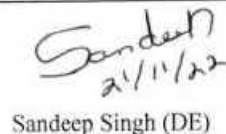 Sandeep
21/11/22
Sandeep Singh (DE)